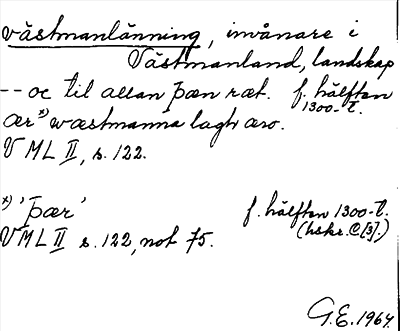 västmanlänning, invånare i
Västmanland, landskap
-- oc til allan þæn ræt. f. hälften
1300-t.
ær*) wæstmanna lagh æro.
VML II, s. 122.
*) 'þær' f. hälften 1300-t.
(hskr. C [3].)
VML II s. 122, not 75.
G.E. 1964.